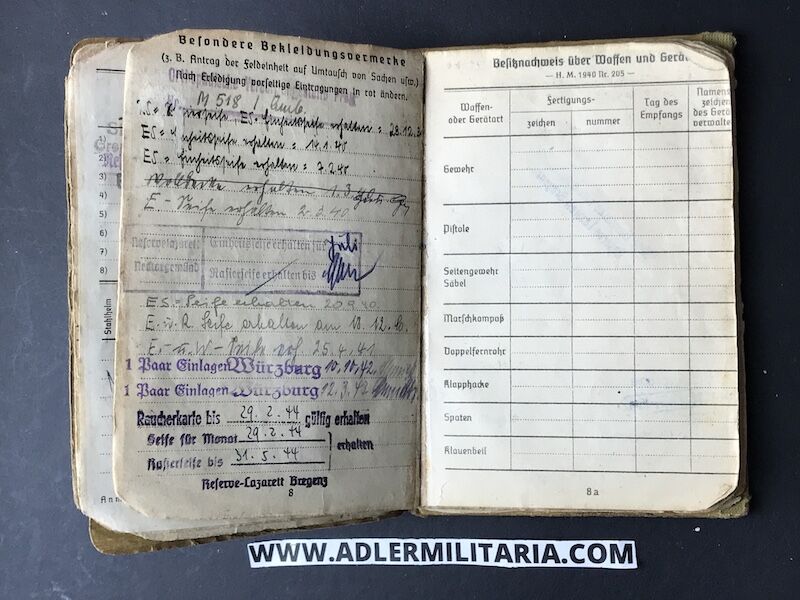 Besondere Bekleidungsvermerke
(z. B. Antrag der Feldeinheit auf Umtausch von Sachen usw.)
Nach Erledigung vorseitige Eintragungen in rot ändern.
M 518 /
ES = Einheitsseife erhalten = 28.12.
ES = Einheitsseife erhalten = 14.1.40
ES = Einheitsseife erhalten = 7.2.40
erhalten 1.3.
E - Seife erhalten 2.3.40
Reservelazarett
Neckargemünd
Einheitsseife erhalten für Juli
Rasierseife erhalten bis
ES.= Seife erhalten 20.9.40.
E. u. R. Seife erhalten am 10.12.40.
E. u. W - Seife erh. 25.4.41
1 Paar Einlagen Würzburg 10.10.42.
1 Paar Einlagen Würzburg 12.3.42
Raucherkarte bis 29.2.44 gültig erhalten
Seife für Monat 29.2.44
Rasierseife bis 31.5.44
erhalten
Reserve-Lazarett Bregenz
8
1)
2)
3)
4)
5)
6)
7)
8)
Stahlhelm
Besitznachweis über Waffen und Gerät
— H. M. 1940 Nr. 205 —
Waffen-
oder Gerätart
Fertigungs-
zeichen
nummer
Tag des
Empfangs
Namens
zeichen
des Gerä
verwalte
Gewehr
Pistole
Seitengewehr
Säbel
Marschkompaß
Doppelfernrohr
Klapphacke
Spaten
Klauenbeil
8a
WWW.ADLERMILITARIA.COM